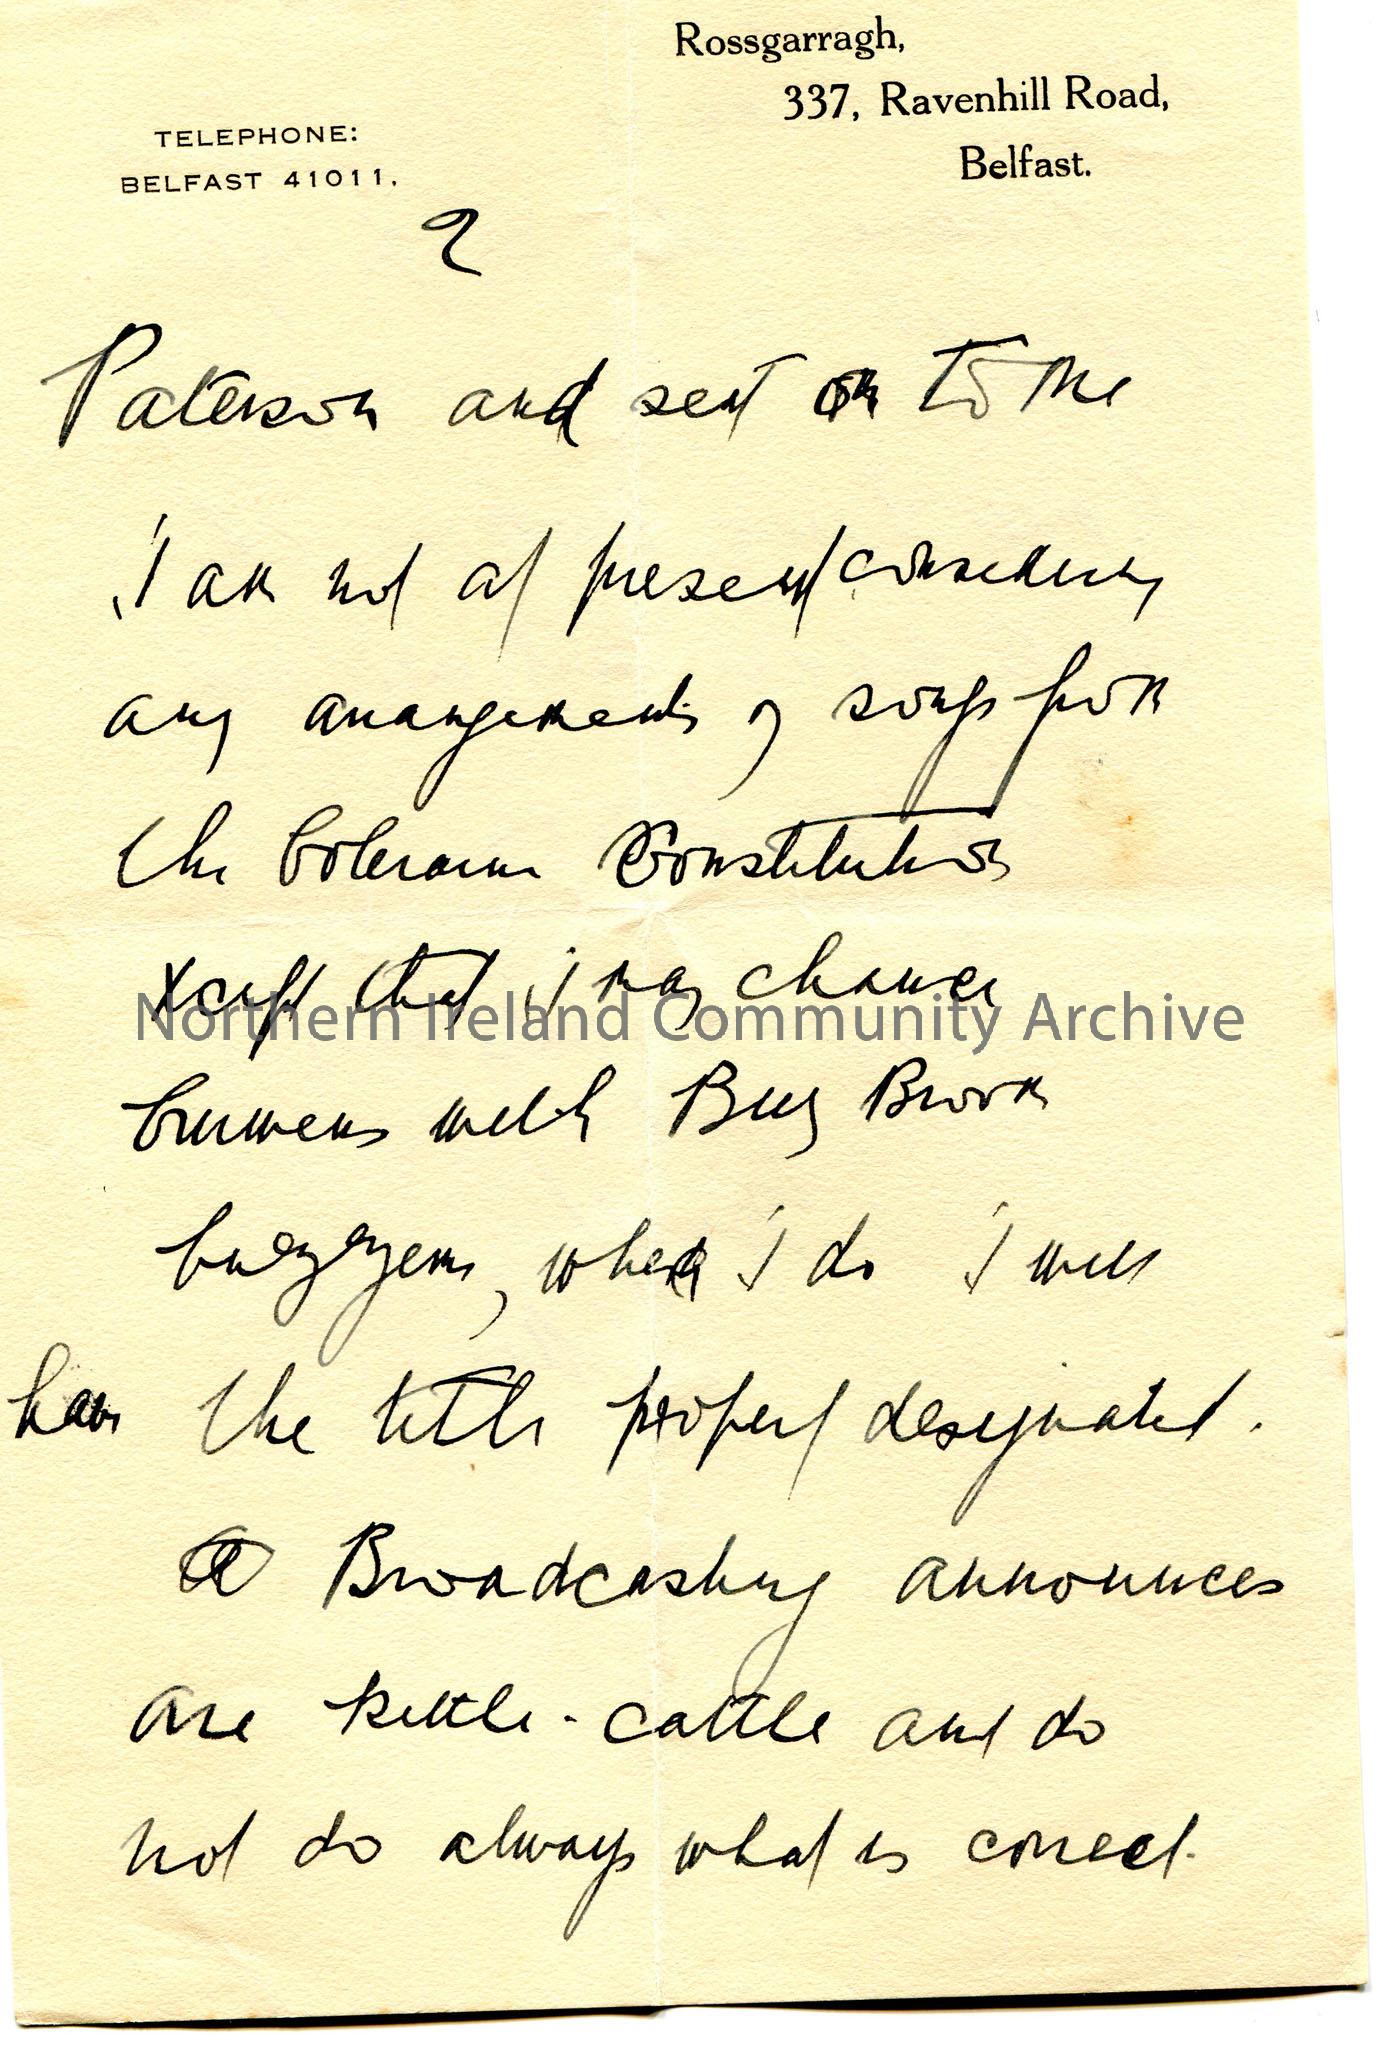 Rossgarragh,
337, Ravenhill Road,
Belfast.
TELEPHONE:
BELFAST 41011.
2
Paterson and sent on to me
I am not at present considering
any arrangements of songs from
the Coleraine Constitution
xcept that I may chance
Northern Ireland Community Archive
with Bug Broom
, when I do I will
have the title properl designated.
Broadcasting announces
are kittle-cattle and do
not do always what is correct.